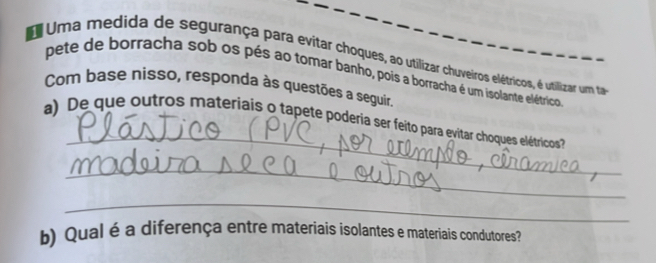 1 Uma medida de segurança para evitar choques, ao utilizar chuveiros elétricos, é utilizar um ta-
pete de borracha sob os pés ao tomar banho, pois a borracha é um isolante elétrico.
Com base nisso, responda às questões a seguir.
a) De que outros materiais o tapete poderia ser feito para evitar choques elétricos?
Plástico (PVC, por exemplo, cêramica,
madeira seca e outros
b) Qual é a diferença entre materiais isolantes e materiais condutores?